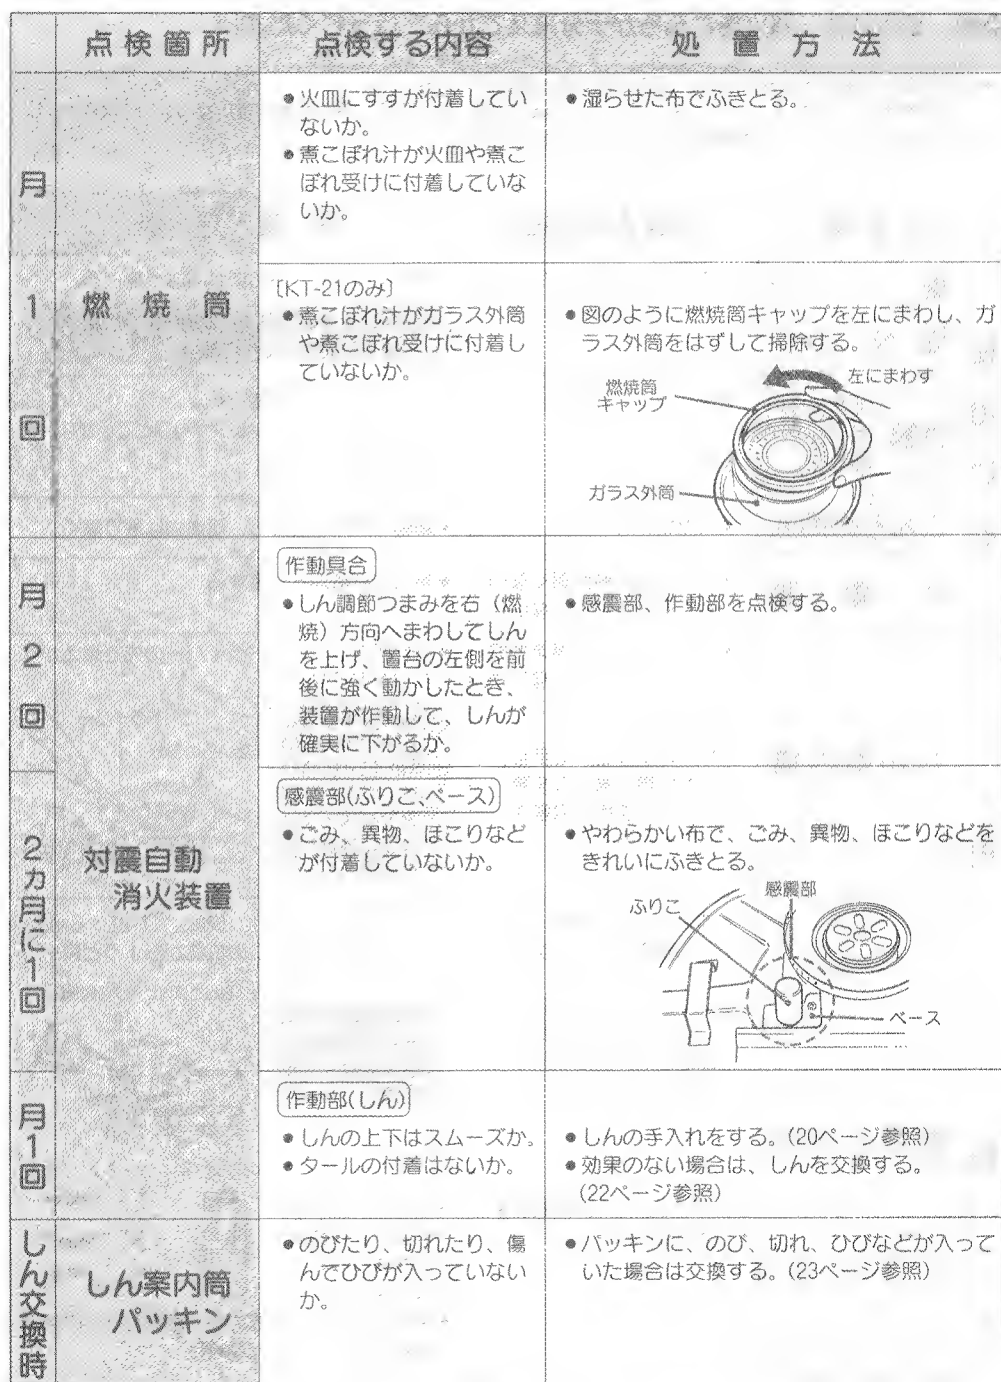 点検箇所
点検する内容
処置方法
月1回
燃焼筒
●火皿にすすが付着してい
ないか。
●煮こぼれ汁が火皿や煮こ
ぼれ受けに付着していな
いか。
●湿らせた布でふきとる。
〔KT-21のみ〕
●煮こぼれ汁がガラス外筒
や煮こぼれ受けに付着し
ていないか。
●図のように燃焼筒キャップを左にまわし、ガ
ラス外筒をはずして掃除する。
左にまわす
燃焼筒
キャップ
ガラス外筒
月2回
対震自動
消火装置
作動具合
●しん調節つまみを右（燃
焼）方向へまわしてしん
を上げ、置台の左側を前
後に強く動かしたとき、
装置が作動して、しんが
確実に下がるか。
●感震部、作動部を点検する。
2カ月に1回
感震部(ふりこ、ベース)
●ごみ、異物、ほこりなど
が付着していないか。
●やわらかい布で、ごみ、異物、ほこりなどを
きれいにふきとる。
感震部
ふりこ
ベース
月1回
作動部(しん)
●しんの上下はスムーズか。
●タールの付着はないか。
●しんの手入れをする。(20ページ参照)
●効果のない場合は、しんを交換する。
(22ページ参照)
しん交換時
しん案内筒
パッキン
●のびたり、切れたり、傷
んでひびが入っていない
か。
●パッキンに、のび、切れ、ひびなどが入って
いた場合は交換する。(23ページ参照)